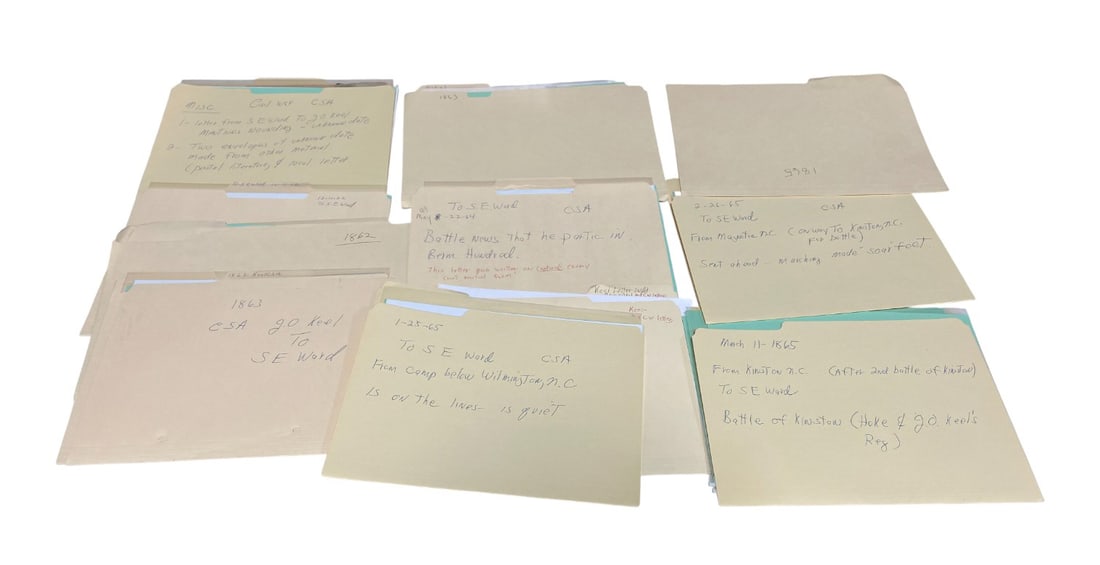 MISC Civil War CSA
1- letter from S E Ward To J.O. Keel
mentions wounding - unknown date
2- Two envelopes of unknown date
made from other material
(partial literature, & local letter
1863
1865
S E Ward
1862
To S E Ward CSA
May 22-64
Battle News That he partic in.
Berm Hundred.
This letter was written on captured
2-26-65
To S E Ward CSA
From Magnolia N.C. (on way To Kinston, N.C.
for battle)
Sent ahead - Marching made "soar feet"
1863
CSA J.O Keel
To
S E Ward
1-25-65
To S E Ward CSA
From Camp below Wilmington, N.C
Is on the lines - is quiet
March 11-1865
From Kinston N.C. (After 2nd battle of Kinston)
To S E Ward
Battle of Kinston (Hoke & J.O. Keel's
Reg)